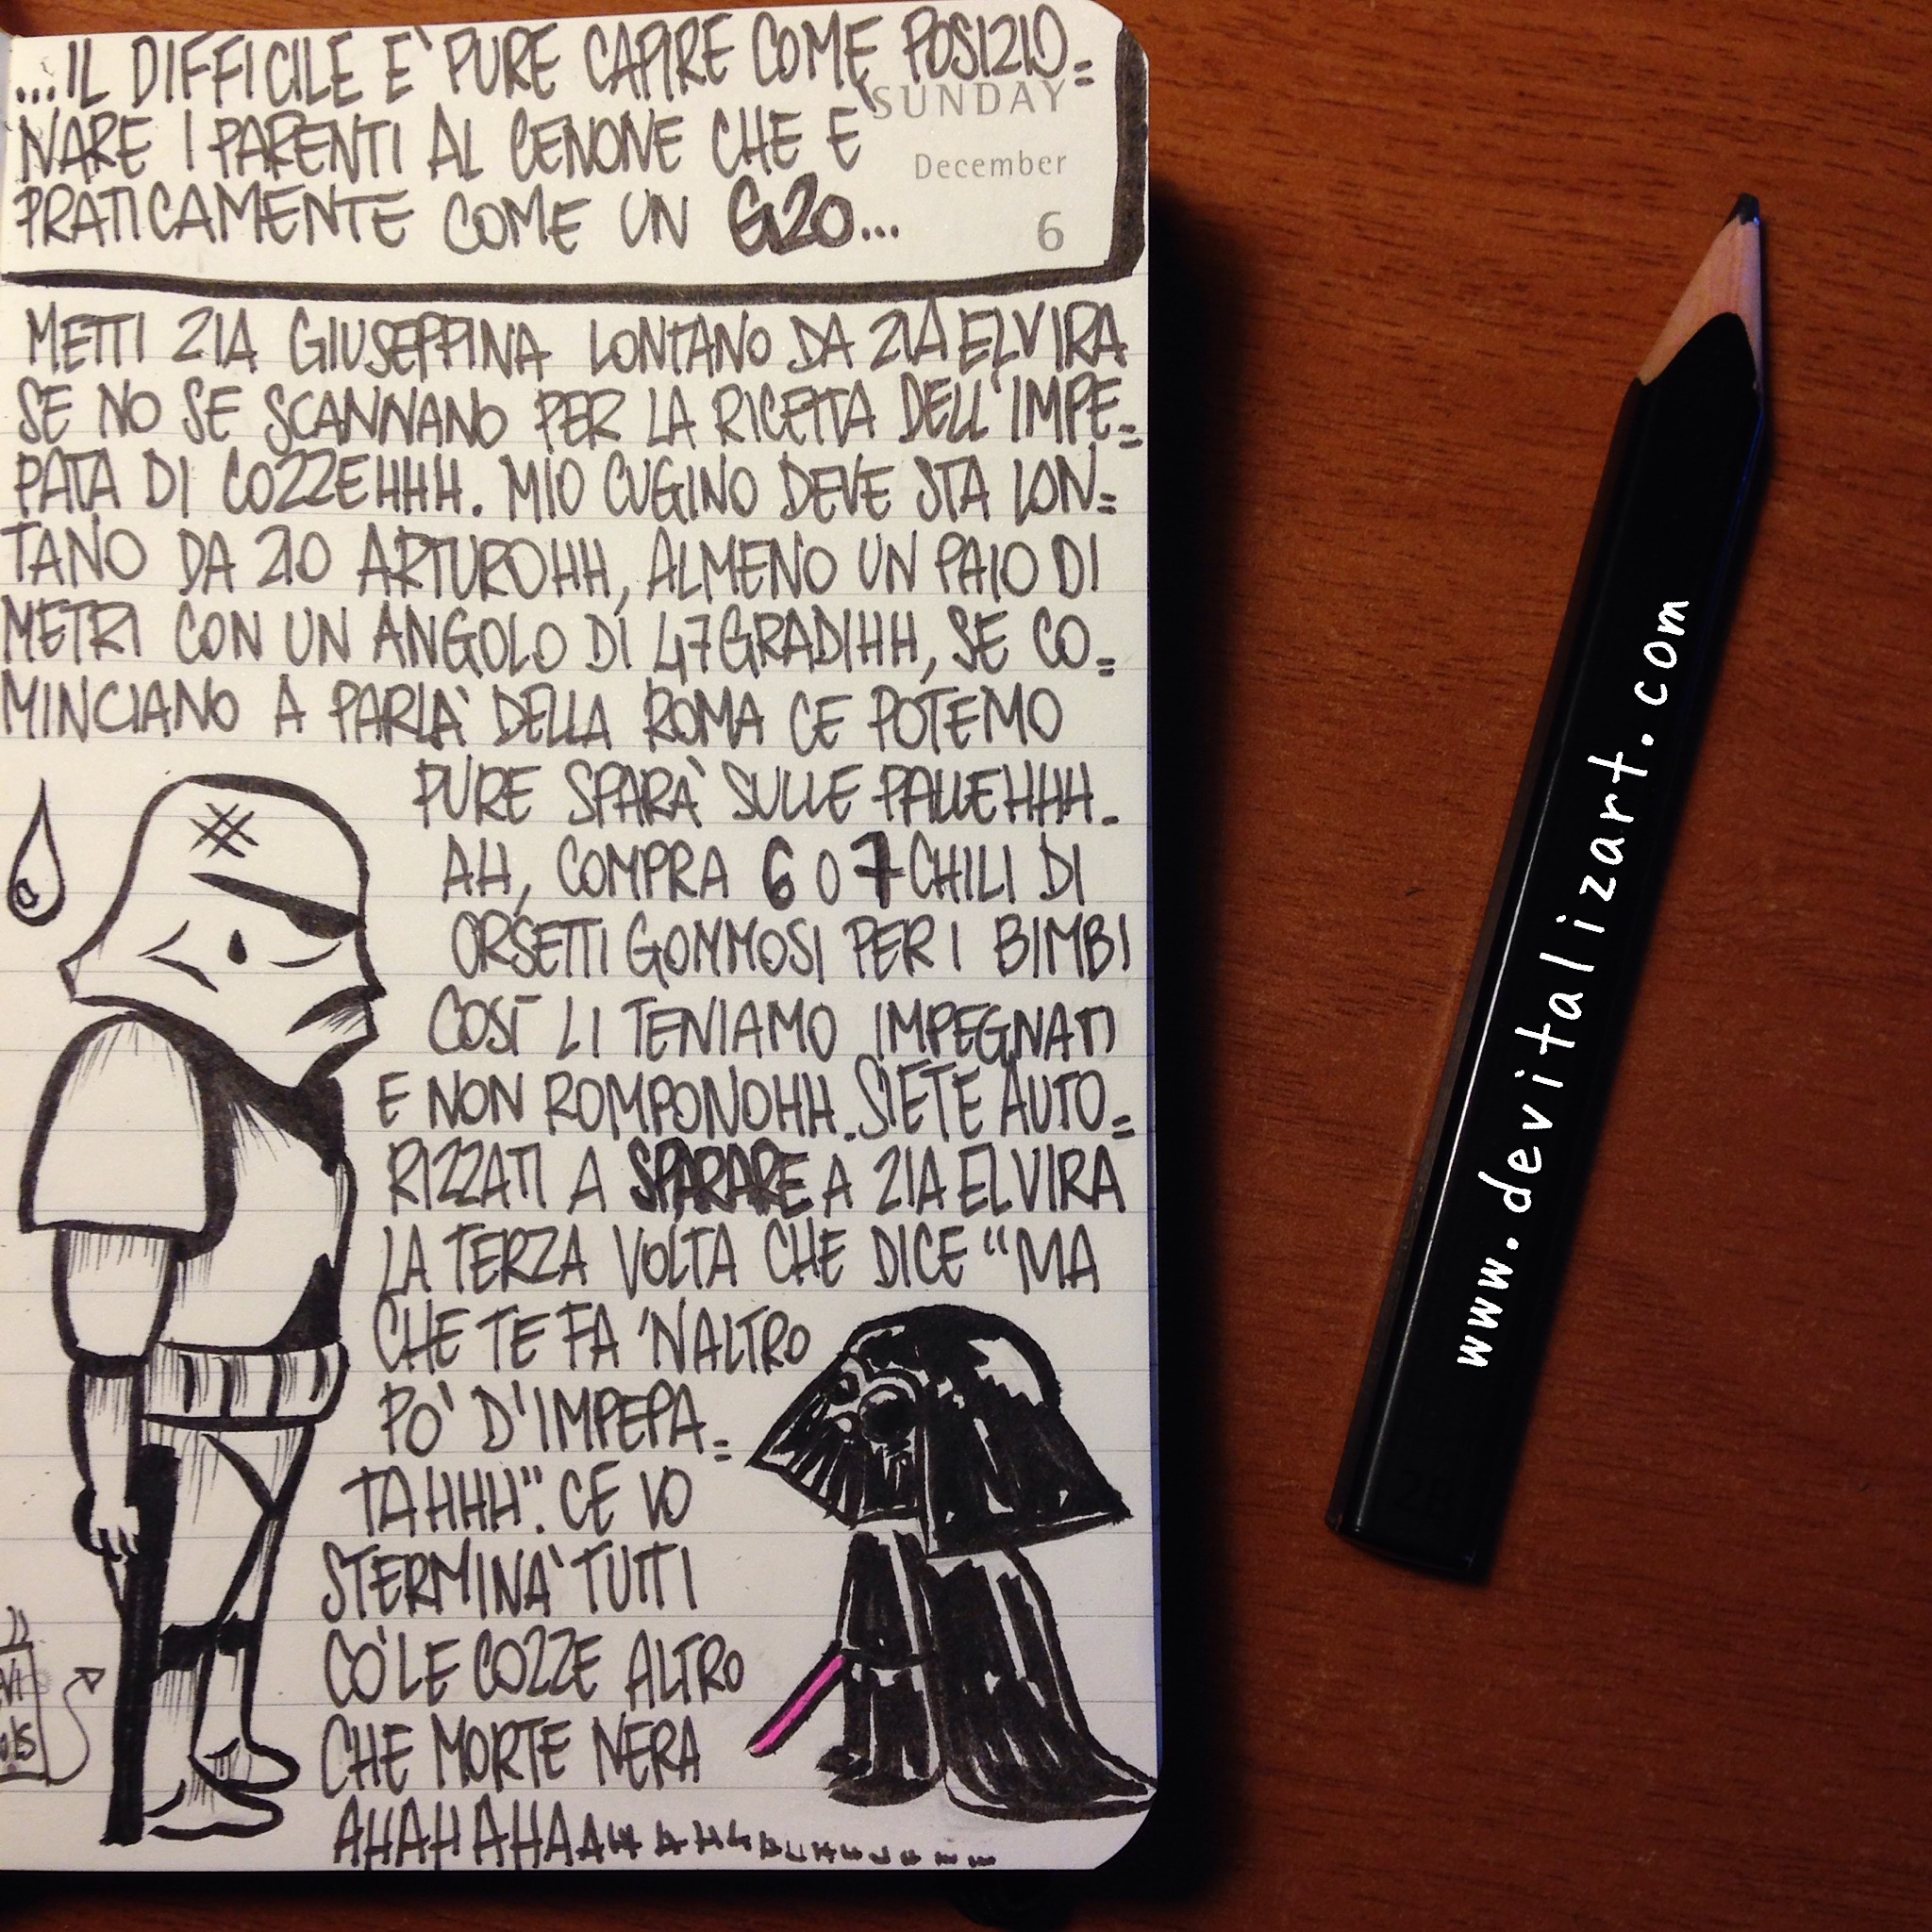 ...IL DIFFICILE E' PURE CAPIRE COME POSIZIO=
SUNDAY
NARE I PARENTI AL CENONE CHE E'
December
PRATICAMENTE COME UN G20...
6
METTI ZIA GIUSEPPINA LONTANO DA ZIA ELVIRA
SE NO SE SCANNANO PER LA RICETTA DELL'IMPE=
PATA DI COZZEHHH. MIO CUGINO DEVE STA LON=
TANO DA ZIO ARTUROHH, ALMENO UN PAIO DI
METRI CON UN ANGOLO DI 47 GRADIHH, SE CO=
MINCIANO A PARLA' DELLA ROMA CE POTEMO
PURE SPARA' SULLE PALLEHHH.
AH, COMPRA 6 O 7 CHILI DI
ORSETTI GOMMOSI PER I BIMBI
COSÌ LI TENIAMO IMPEGNATI
E NON ROMPONOHH. SIETE AUTO=
RIZZATI A SPARARE A ZIA ELVIRA
LA TERZA VOLTA CHE DICE "MA
CHE TE FA 'N ALTRO
PO' D'IMPEPA=
TAHHH". CE VO
STERMINA' TUTTI
CO' LE COZZE ALTRO
CHE MORTE NERA
AHAHAHAAHAH
www.devitalizart.com
2B